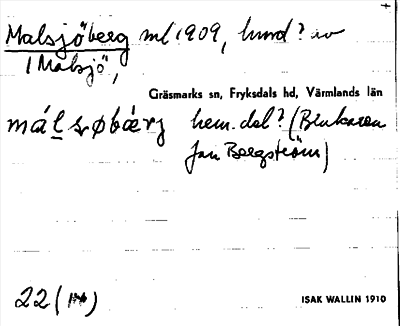 Malsjöberg ml 1909, hmd? av
1 Malsjö,
Gräsmarks sn, Fryksdals hd, Värmlands län
hem. del? (Brukaren
Jan Bergström)
22 (14)
ISAK WALLIN 1910